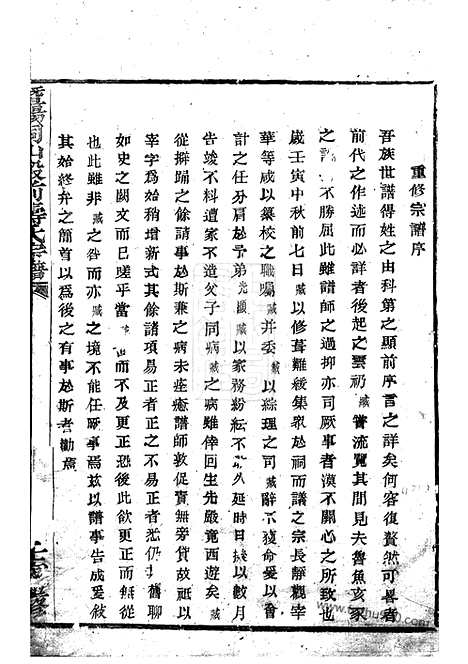 重修宗譜序
吾族世譜得姓之由科第之顯前序言之詳矣何容復贅然可畧者
前代之作述而必詳者後起之雲礽臧嘗流覽其間見夫魯魚亥豕
之不勝屈此雖譜師之過抑亦司厥事者漠不關心之所致也
歲壬寅中秋前七日臧以修葺難緩集衆於祠而議之宗長靜觀宰
華等咸以纂校之職囑臧并委臧以綜理之司臧辭不獲命爰以會
計之任分肩於予弟光顯臧以家務紛紜不能久延時日擬以數月
告竣不料遭家不造父子同病臧之病雖倖回生先嚴竟西遊矣臧
從擗踴之餘請事於斯兼之病未痊癒譜師敦促實無旁貸故祗以
宰字爲始稍增新式其餘諸項易正者正之不易正者悉仍其舊聊
如史之闕文而已嗟乎當而不及更正恐後此欲更正而無從
也此雖非臧之咎而亦臧之境不能任厥事焉茲以譜事告成爰敘
其始終弁之簡首以爲後之有事於斯者勸焉
氏宗譜